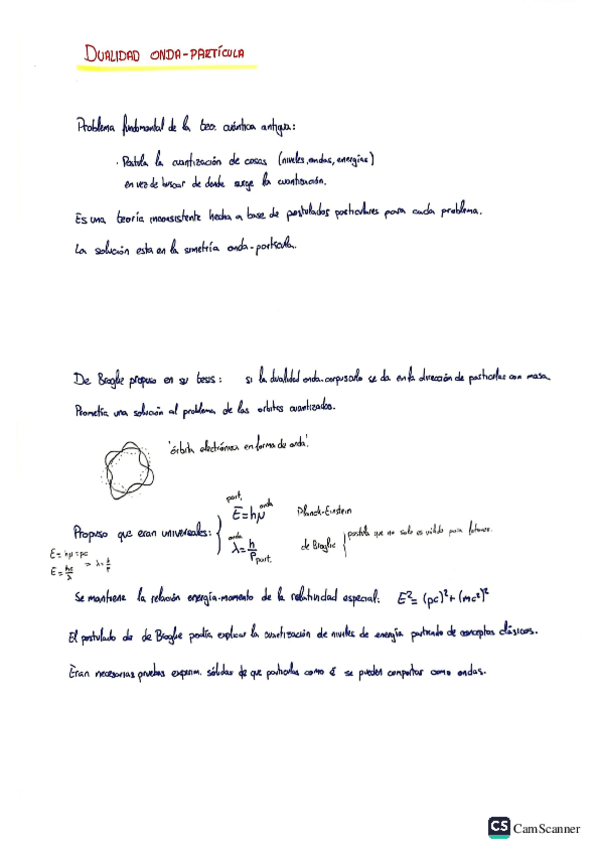 DUALIDAD ONDA-PARTÍCULA
Problema fundamental de la teo. cuántica antigua:
· Postula la cuantización de cosas (niveles, ondas, energías)
en vez de buscar de donde surge la cuantización.
Es una teoría inconsistente hecha a base de postulados particulares para cada problema.
La solución esta en la simetría onda-partícula.
De Broglie propuso en su tesis: si la dualidad onda-corpusculo se da en la dirección de particulas con masa
Prometía una solución al problema de las orbitas cuantizadas.
'órbita electrónica en forma de onda'.
part. onda
E=hν Planck-Einstein
Propuso que eran universales:
onda
λ=h/p part. de Broglie postula que no solo es válido para fotones.
E=hν=pc
E=hc/λ => λ=h/p
Se mantiene la relación energía-momento de la relatividad especial: E²=(pc)²+(mc²)²
El postulado de de Broglie podía explicar la cuantización de niveles de energía partiendo de conceptos clásicos.
Eran necesarias pruebas experim. sólidas de que partículas como é se pueden comportar como ondas.
CS CamScanner